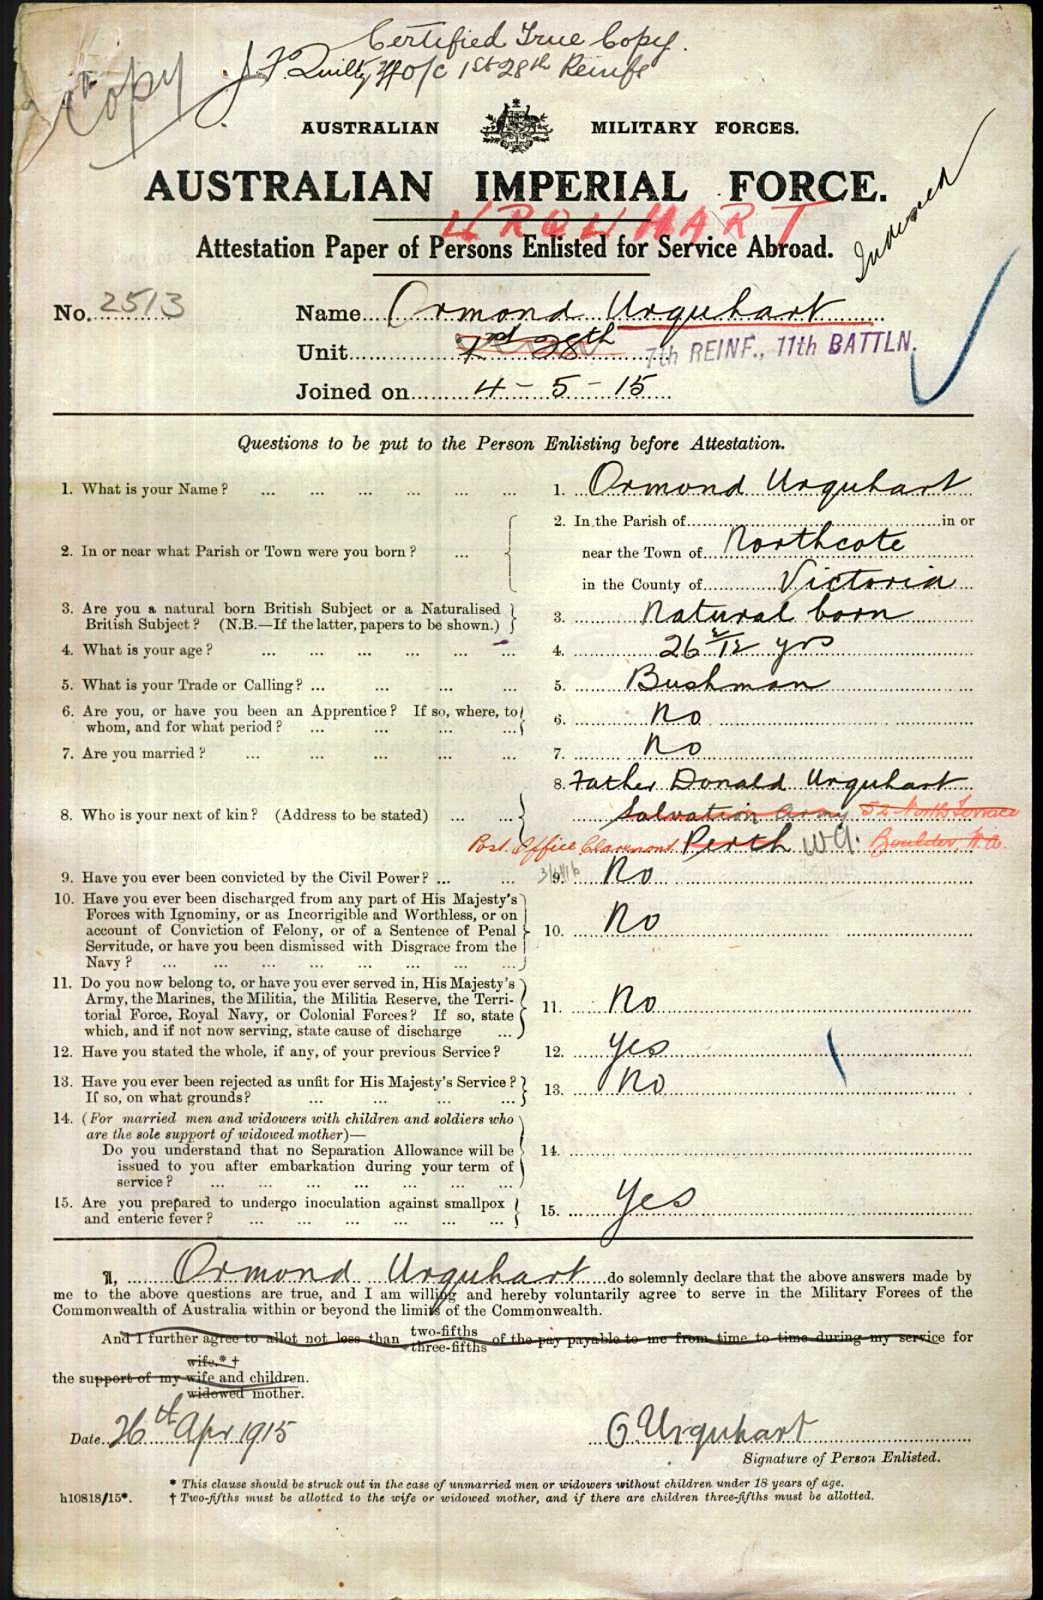 Certified True Copy.
Copy
J. F. Quilty Lt O/C 1st 28th Reinfs
AUSTRALIAN MILITARY FORCES.
AUSTRALIAN IMPERIAL FORCE.
URQUHART
Indexed
Attestation Paper of Persons Enlisted for Service Abroad.
No. 2513 Name Ormond Urquhart
Unit 28th 7th REINF., 11th BATTLN.
Joined on 4-5-15
Questions to be put to the Person Enlisting before Attestation.
1. What is your Name? ... ... ... ... ... ... 1. Ormond Urquhart
2. In the Parish of in or
2. In or near what Parish or Town were you born? ... near the Town of Northcote
in the County of Victoria
3. Are you a natural born British Subject or a Naturalised
British Subject? (N.B.—If the latter, papers to be shown.) 3. Natural born
4. What is your age? ... ... ... ... ... ... 4. 26 2/12 yrs
5. What is your Trade or Calling? ... ... ... ... 5. Bushman
6. Are you, or have you been an Apprentice? If so, where, to
whom, and for what period? ... ... ... ... 6. No
7. Are you married? ... ... ... ... ... ... 7. No
8. Father Donald Urquhart
8. Who is your next of kin? (Address to be stated) ... ... Salvation Army 52 North Terrace
Post Office Claremont Perth WA. Boulder, W.A.
9. Have you ever been convicted by the Civil Power? ... ... 9. No
10. Have you ever been discharged from any part of His Majesty's
Forces with Ignominy, or as Incorrigible and Worthless, or on
account of Conviction of Felony, or of a Sentence of Penal 10. No
Servitude, or have you been dismissed with Disgrace from the
Navy? ... ... ... ... ... ... ... ...
11. Do you now belong to, or have you ever served in, His Majesty's
Army, the Marines, the Militia, the Militia Reserve, the Terri-
torial Force, Royal Navy, or Colonial Forces? If so, state 11. No
which, and if not now serving, state cause of discharge ...
12. Have you stated the whole, if any, of your previous Service? 12. Yes
13. Have you ever been rejected as unfit for His Majesty's Service?
If so, on what grounds? ... ... ... ... 13. No
14. (For married men and widowers with children and soldiers who
are the sole support of widowed mother)—
Do you understand that no Separation Allowance will be 14.
issued to you after embarkation during your term of
service? ... ... ... ... ... ... ...
15. Are you prepared to undergo inoculation against smallpox
and enteric fever? ... ... ... ... ... ... 15. Yes
I, Ormond Urquhart do solemnly declare that the above answers made by
me to the above questions are true, and I am willing and hereby voluntarily agree to serve in the Military Forces of the
Commonwealth of Australia within or beyond the limits of the Commonwealth.
And I further agree to allot not less than two-fifths three-fifths of the pay payable to me from time to time during my service for
wife.*†
the support of my wife and children.
widowed mother.
Date 26th Apr 1915 O Urquhart
Signature of Person Enlisted.
* This clause should be struck out in the case of unmarried men or widowers without children under 18 years of age.
h10818/15*. † Two-fifths must be allotted to the wife or widowed mother, and if there are children three-fifths must be allotted.